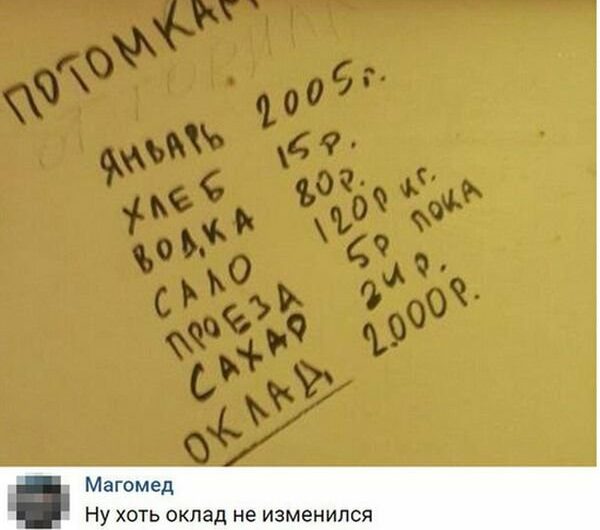 ПОТОМКАМ
ЯНВАРЬ 2005г.
ХЛЕБ 15р.
ВОДКА 80р.
САЛО 120р кг.
ПРОЕЗД 5р ПОКА
САХАР 24р.
ОКЛАД 2.000р.
Магомед
Ну хоть оклад не изменился